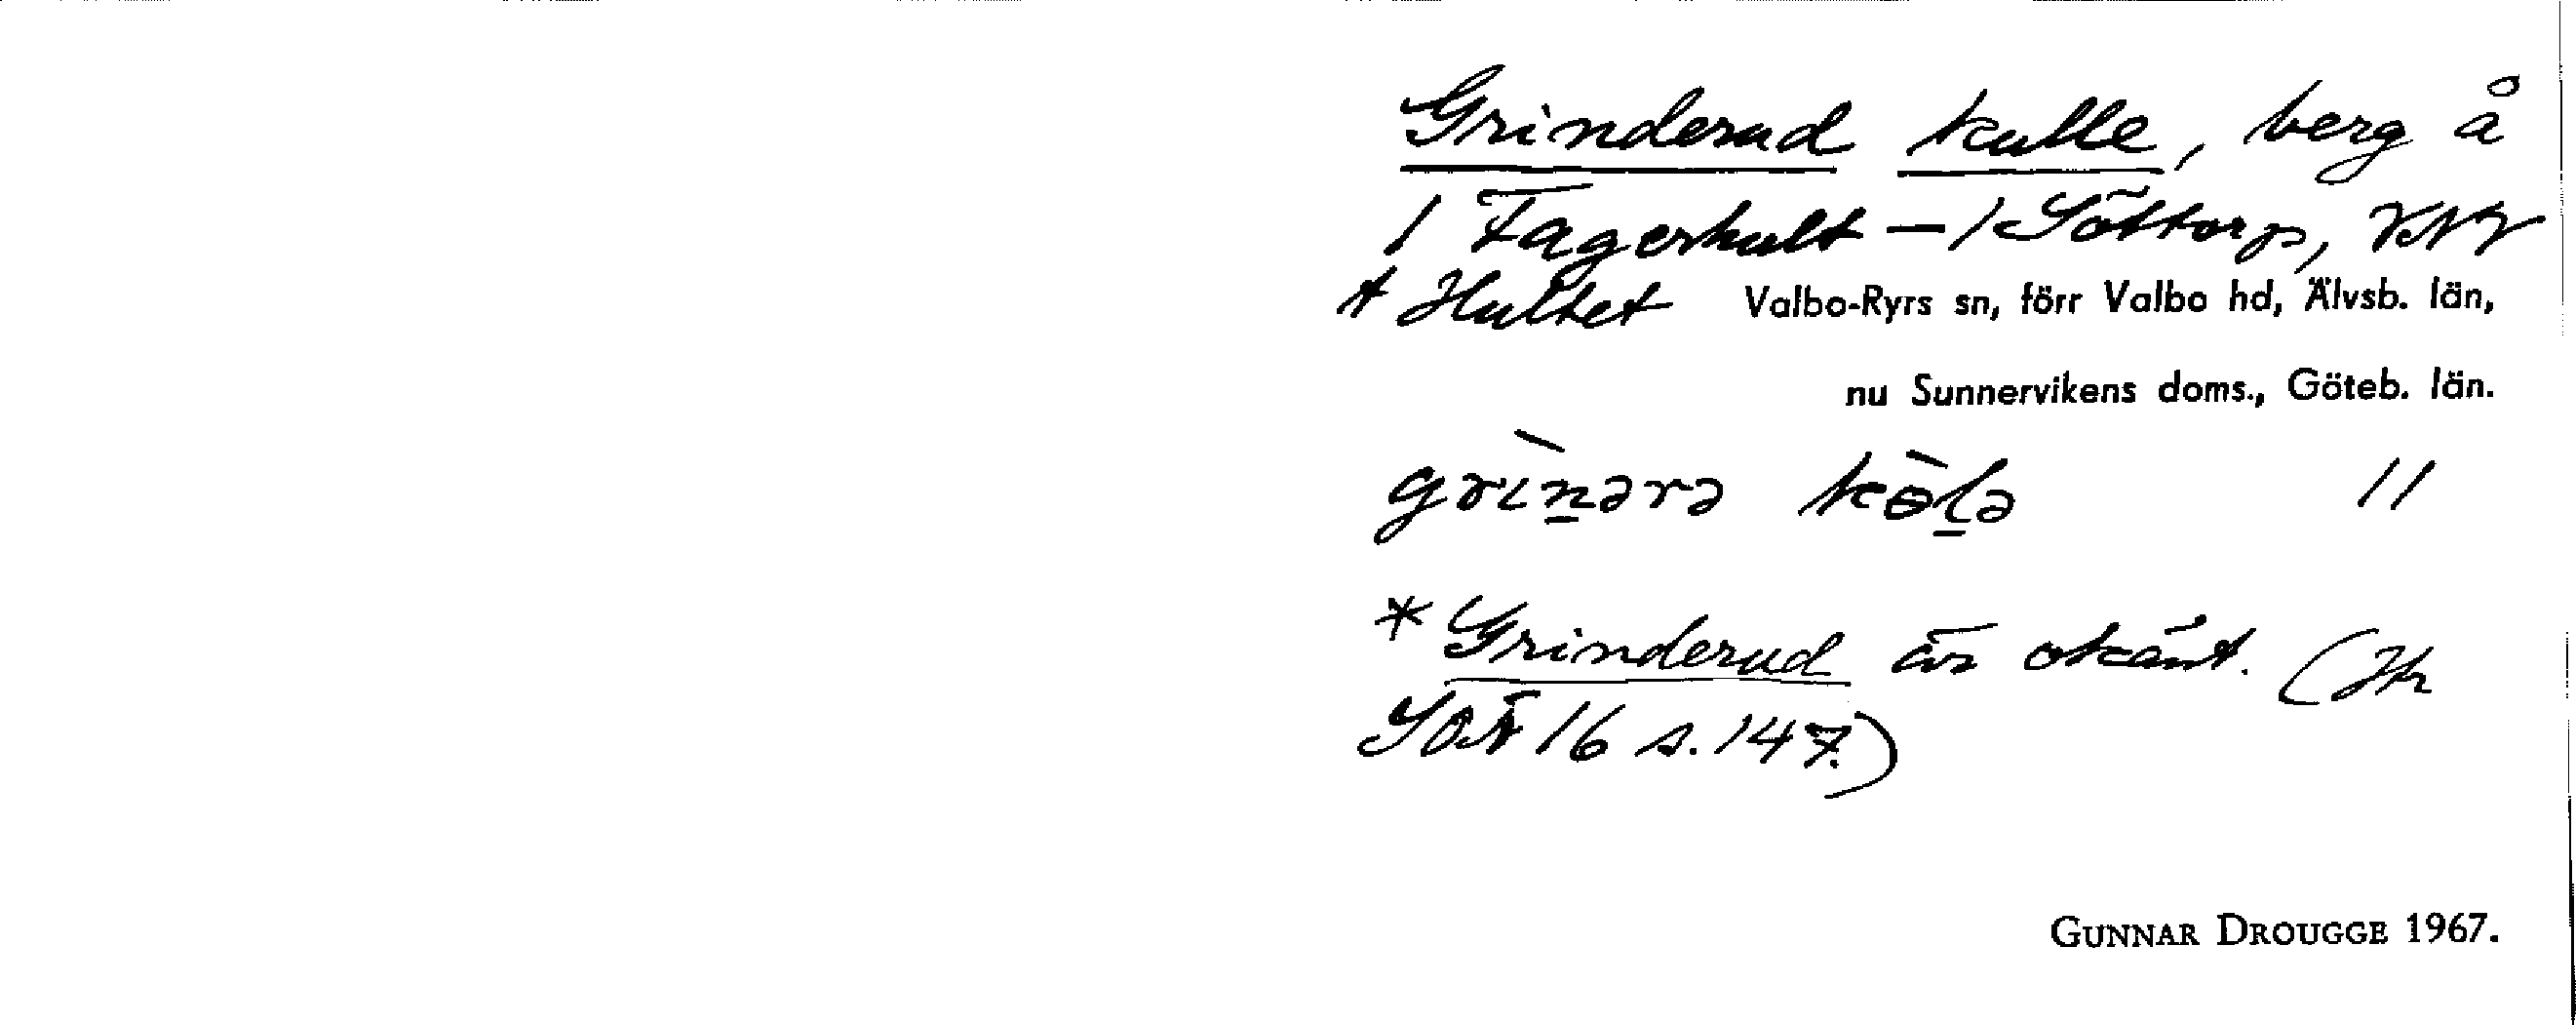 Grinderud kulle, berg å
1 Fagerhult – 1 Söttorp, VNV
t Hultet Valbo-Ryrs sn, förr Valbo hd, Älvsb. län,
nu Sunnervikens doms., Göteb. län.
grìn̲ərə kɵ̀l̲ə 11
* Grinderud är okänt. (Jfr
SOÄ 16 s. 147.)
GUNNAR DROUGGE 1967.